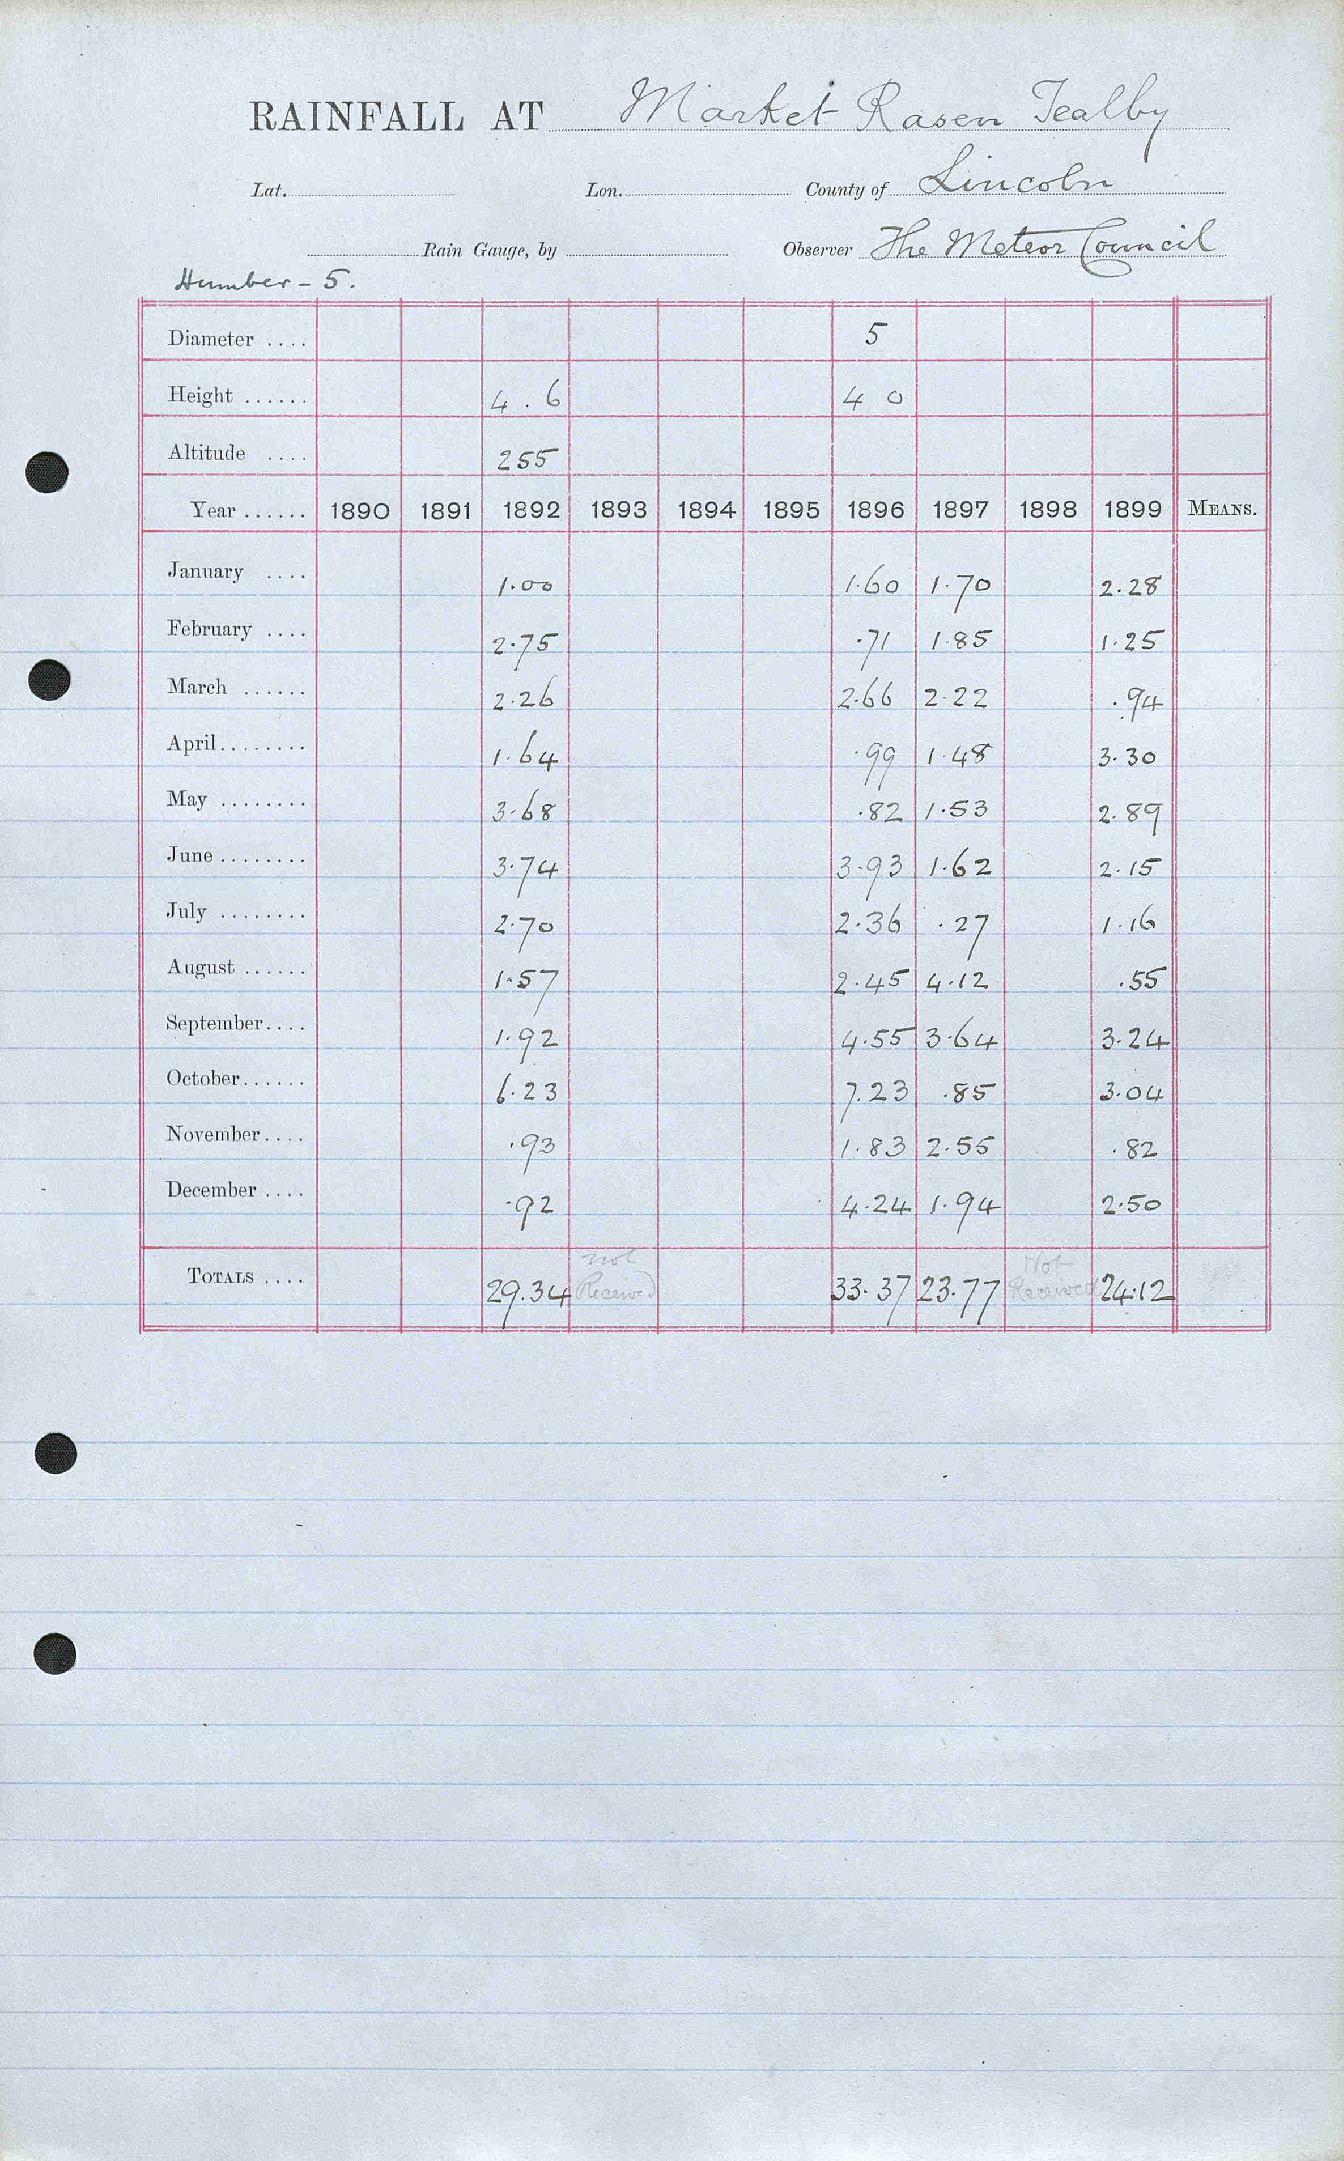 RAINFALL AT Market Rasen Tealby
Lat. Lon. County of Lincoln
Rain Gauge, by Observer The Meteor Council
Humber - 5.
Diameter .... 5
Height ...... 4.6 4 0
Altitude .... 255
Year ...... 1890 1891 1892 1893 1894 1895 1896 1897 1898 1899 MEANS.
January .... 1.00 1.60 1.70 2.28
February .... 2.75 .71 1.85 1.25
March ...... 2.26 2.66 2.22 .94
April........ 1.64 .99 1.48 3.30
May ........ 3.68 .82 1.53 2.89
June ........ 3.74 3.93 1.62 2.15
July ........ 2.70 2.36 .27 1.16
August ...... 1.57 2.45 4.12 .55
September.... 1.92 4.55 3.64 3.24
October...... 6.23 7.23 .85 3.04
November.... .93 1.83 2.55 .82
December .... .92 4.24 1.94 2.50
TOTALS .... 29.34 not Received 33.37 23.77 Not Received 24.12